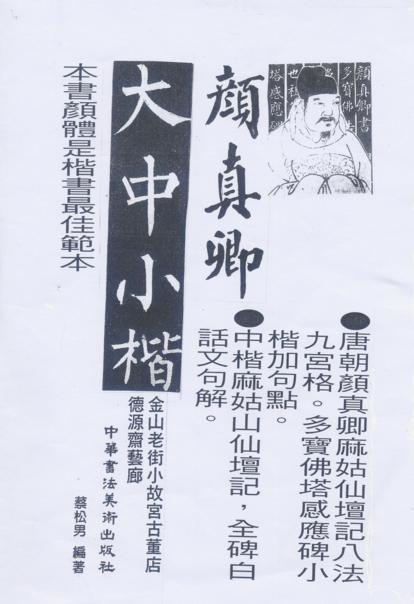 顏真卿書
多寶佛
塔感應碑
●唐朝顏真卿麻姑仙壇記八法
九宮格。多寶佛塔感應碑小
楷加句點。
●中楷麻姑山仙壇記，全碑白
話文句解。
顏真卿
大中小楷
金山老街小故宮古董店
德源齋藝廊
中華書法美術出版社
蔡松男 編著
本書顏體是楷書最佳範本